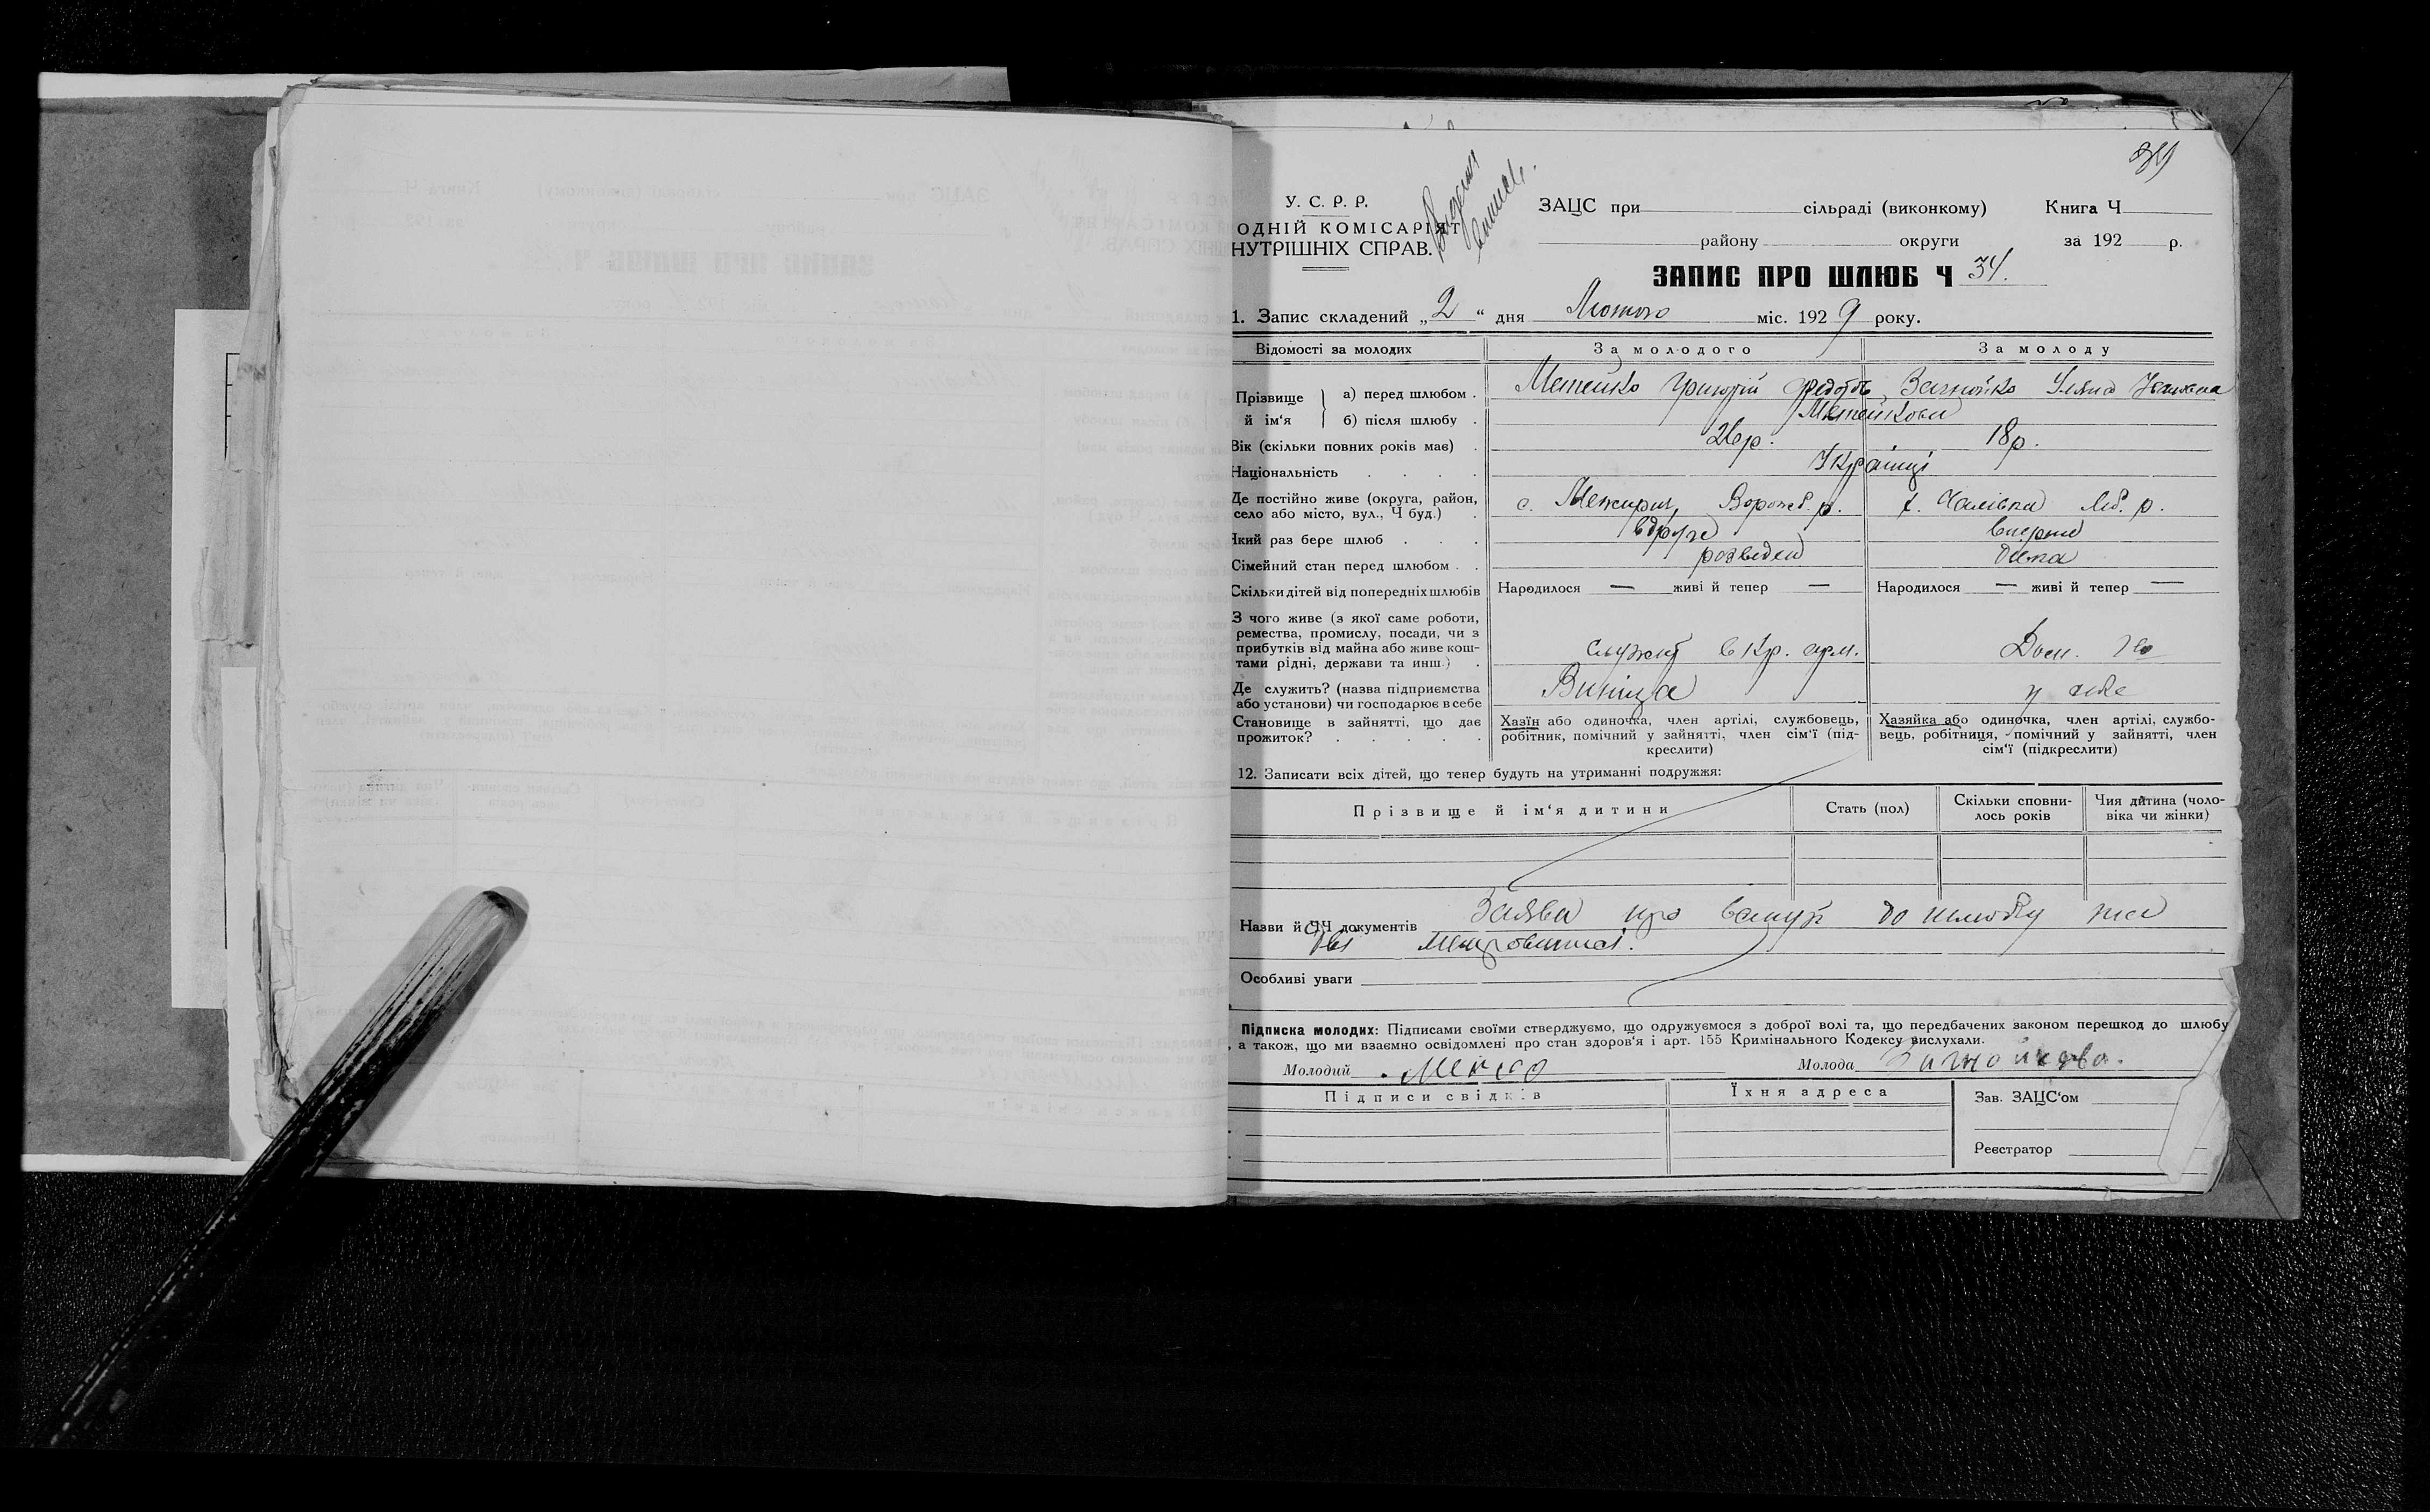 39
У. С. Р. Р.
ОДНІЙ КОМІСАРІЯТ
НУТРІШНІХ СПРАВ.
ЗАЦС при сільраді (виконкому) Книга Ч
району округи за 192 р.
ЗАПИС ПРО ШЛЮБ Ч 34.
1. Запис складений „2“ дня Лютого міс. 1929 року.
Відомості за молодих За молодого За молоду
Прізвище й ім‘я а) перед шлюбом . Метейко Григорій Федотов
б) після шлюбу . Метейкови
Вік (скільки повних років має) . 26 р. 18 р.
Національність . . . . Українці
Де постійно живе (округа, район, село або місто, вул., Ч буд.) . с. Межирич, р. р.
Який раз бере шлюб . . . вдруге вперше
Сімейний стан перед шлюбом . . розведен діва
Скільки дітей від попередніх шлюбів Народилося — живі й тепер — Народилося — живі й тепер —
З чого живе (з якої саме роботи,
ремества, промислу, посади, чи з
прибутків від майна або живе кош-
тами рідні, держави та инш.) . служит в Кр. арм.
Де служить? (назва підприємства
або установи) чи господарює в себе Вініца у себе
Становище в зайнятті, що дає
прожиток? . . . . .
Хазїн або одиночка, член артілі, службовець,
робітник, помічний у зайнятті, член сім‘ї (під-
креслити)
Хазяйка або одиночка, член артілі, службо-
вець, робітниця, помічний у зайнятті, член
сім‘ї (підкреслити)
12. Записати всіх дітей, що тепер будуть на утриманні подружжя:
Прізвище й ім‘я дитини Стать (пол) Скільки сповни-
лось років Чия дитина (чоло-
віка чи жінки)
Назви й ЧЧ документів Заява про вступ до шлюбу та
дві
Особливі уваги
Підписка молодих: Підписами своїми стверджуємо, що одружуємося з доброї волі та, що передбачених законом перешкод до шлюбу
, а також, що ми взаємно освідомлені про стан здоров‘я і арт. 155 Кримінального Кодексу вислухали.
Молодий Молода
Підписи свідків Їхня адреса Зав. ЗАЦС‘ом
Реєстратор